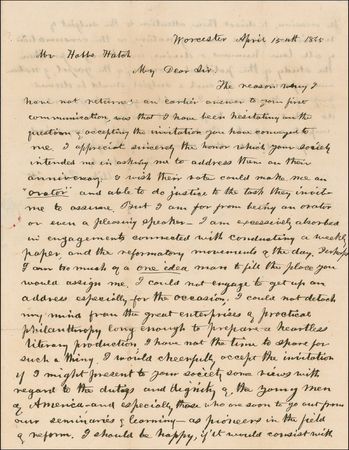 Worcester April 15th 18
Mr Hatch
My Dear Sir.
The reason why I
have not returned an earlier answer to your first
communication, was that I have been hesitating on the
question of accepting the invitation you have conveyed to
me. I appreciate sincerely the honor which your society
intended me in asking me to address them on their
anniversary. & wish their vote could make me an
"orator" and able to do justice to the task they invite
me to assume. But I am far from being an orator
or even a pleasing speaker. I am excessively absorbed
in engagements connected with conducting a weekly
paper, and the reformatory movements of the day. Perhaps
I am too much of a one idea man to fill the place you
would assign me. I could not engage to get up an
address especially for the occasion. I could not detach
my mind from the great enterprises of practical
philanthropy long enough to prepare a heartless
literary production. I have not the time to spare for
such a thing. I would cheerfully accept the invitation
if I might present to your society some views with
regard to the dutys and dignity of the young men
of America, and especially those who are soon to go out from
our seminaries of learning as pioneers in the field
of reform. I should be happy, if it would consist with